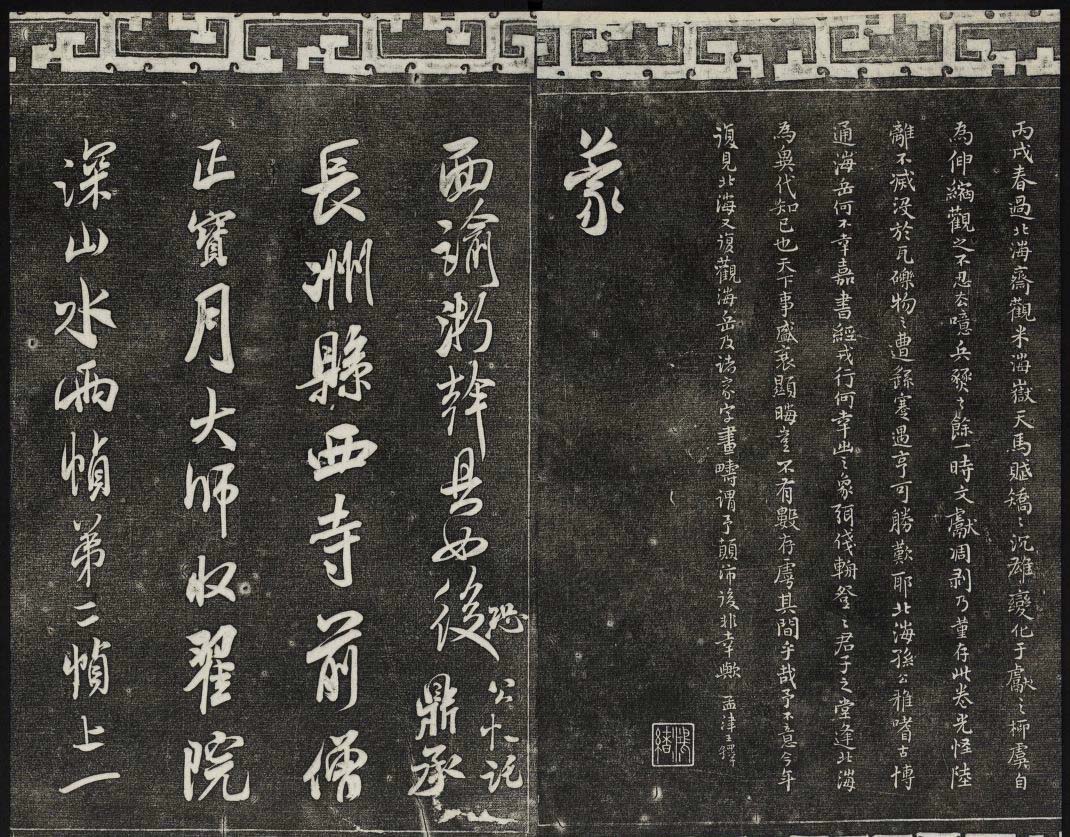 丙戌春過北海齋觀米海嶽天馬賦矯〻沉雄變化于獻〻柳虞自
為伸縮觀之不忍去噫兵燹之餘一時文獻凋剥乃蓳存此卷光怪陸
離不減没於瓦礫物〻遭蹇遇亨可勝歎耶北海孫公雅嗜古博
通海岳何不幸嘉書經戎行何幸出之象弭伐軸登〻君子之堂逢北海
為異代知己也天下事盛衰顯晦豈不有數存虖其間乎哉予不意今年
復見北海又復觀海岳及諸家字畫疇謂予顛沛後非幸歟 孟津王鐸
蒙
面諭淛幹具如後
恐
公忙託
鼎承
長洲縣西寺前僧
正寶月大師收翟院
深山水兩幀第二幀上一